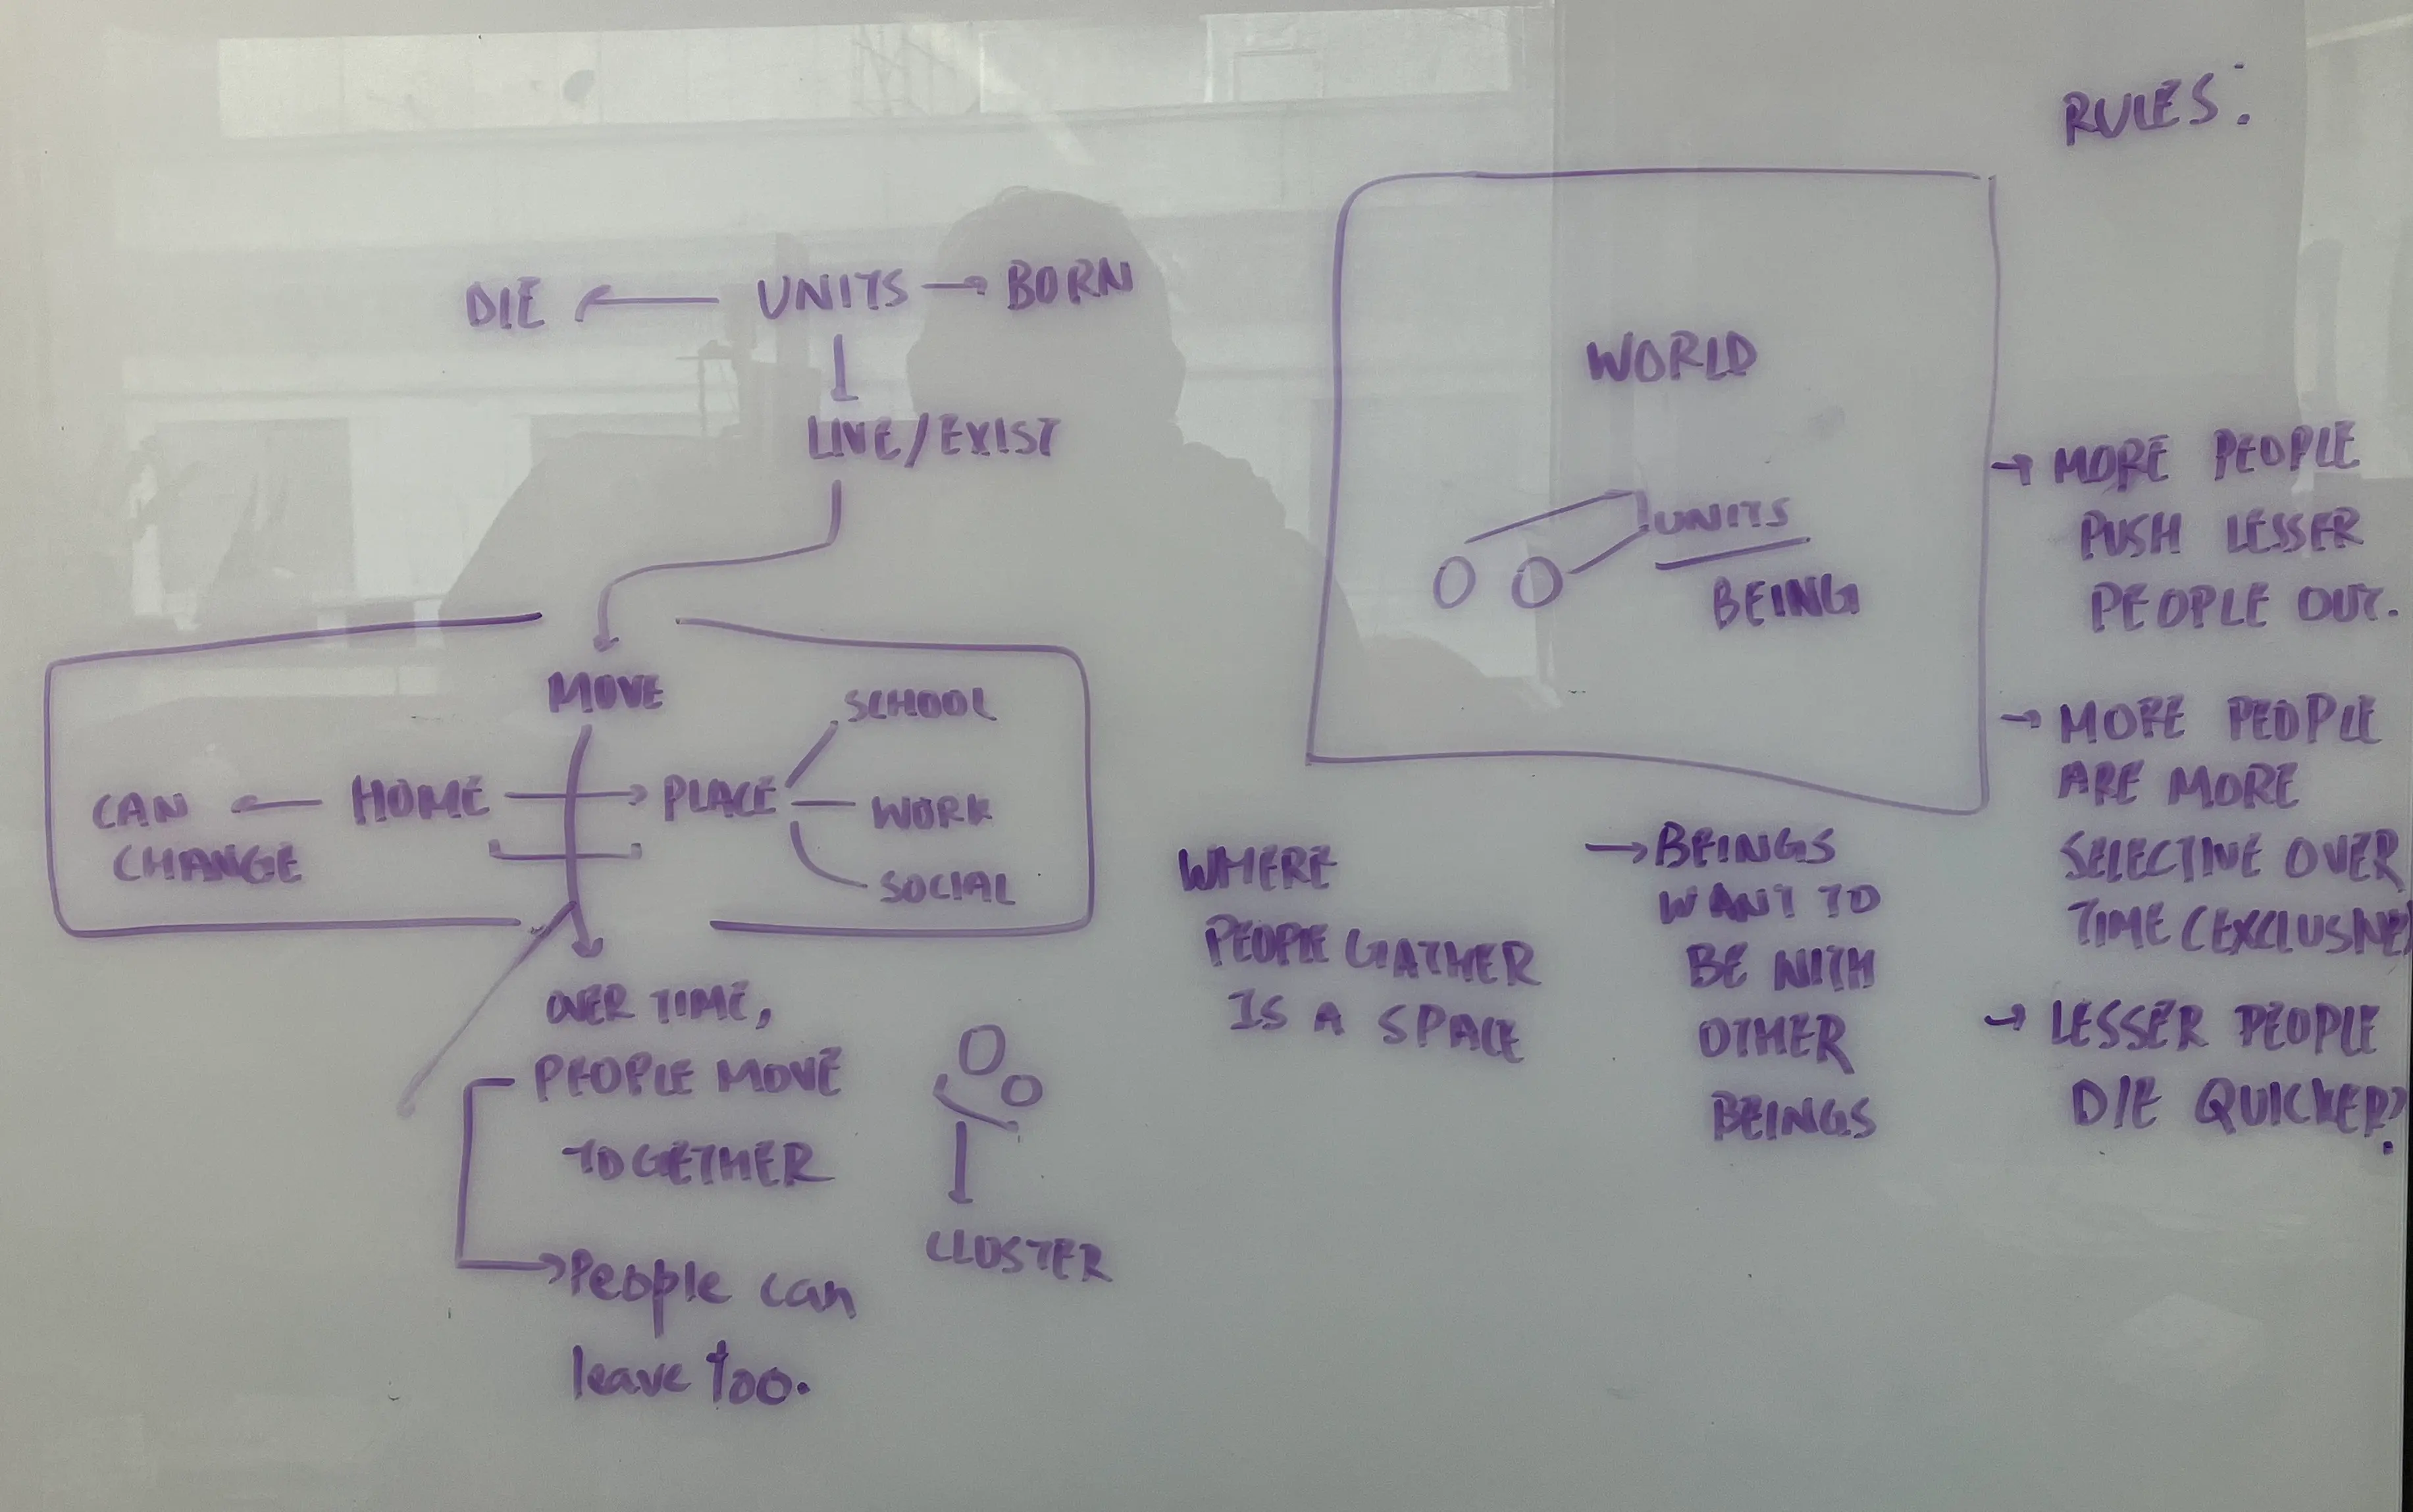 DIE UNITS BORN
LIVE/EXIST
MOVE
CAN
CHANGE
HOME
PLACE
SCHOOL
WORK
SOCIAL
OVER TIME,
PEOPLE MOVE
TOGETHER
People can
leave too.
CLUSTER
WORLD
UNITS
BEING
WHERE
PEOPLE GATHER
IS A SPACE
BEINGS
WANT TO
BE WITH
OTHER
BEINGS
RULES:
MORE PEOPLE
PUSH LESSER
PEOPLE OUT.
MORE PEOPLE
ARE MORE
SELECTIVE OVER
TIME (EXCLUSIVE)
LESSER PEOPLE
DIE QUICKER?